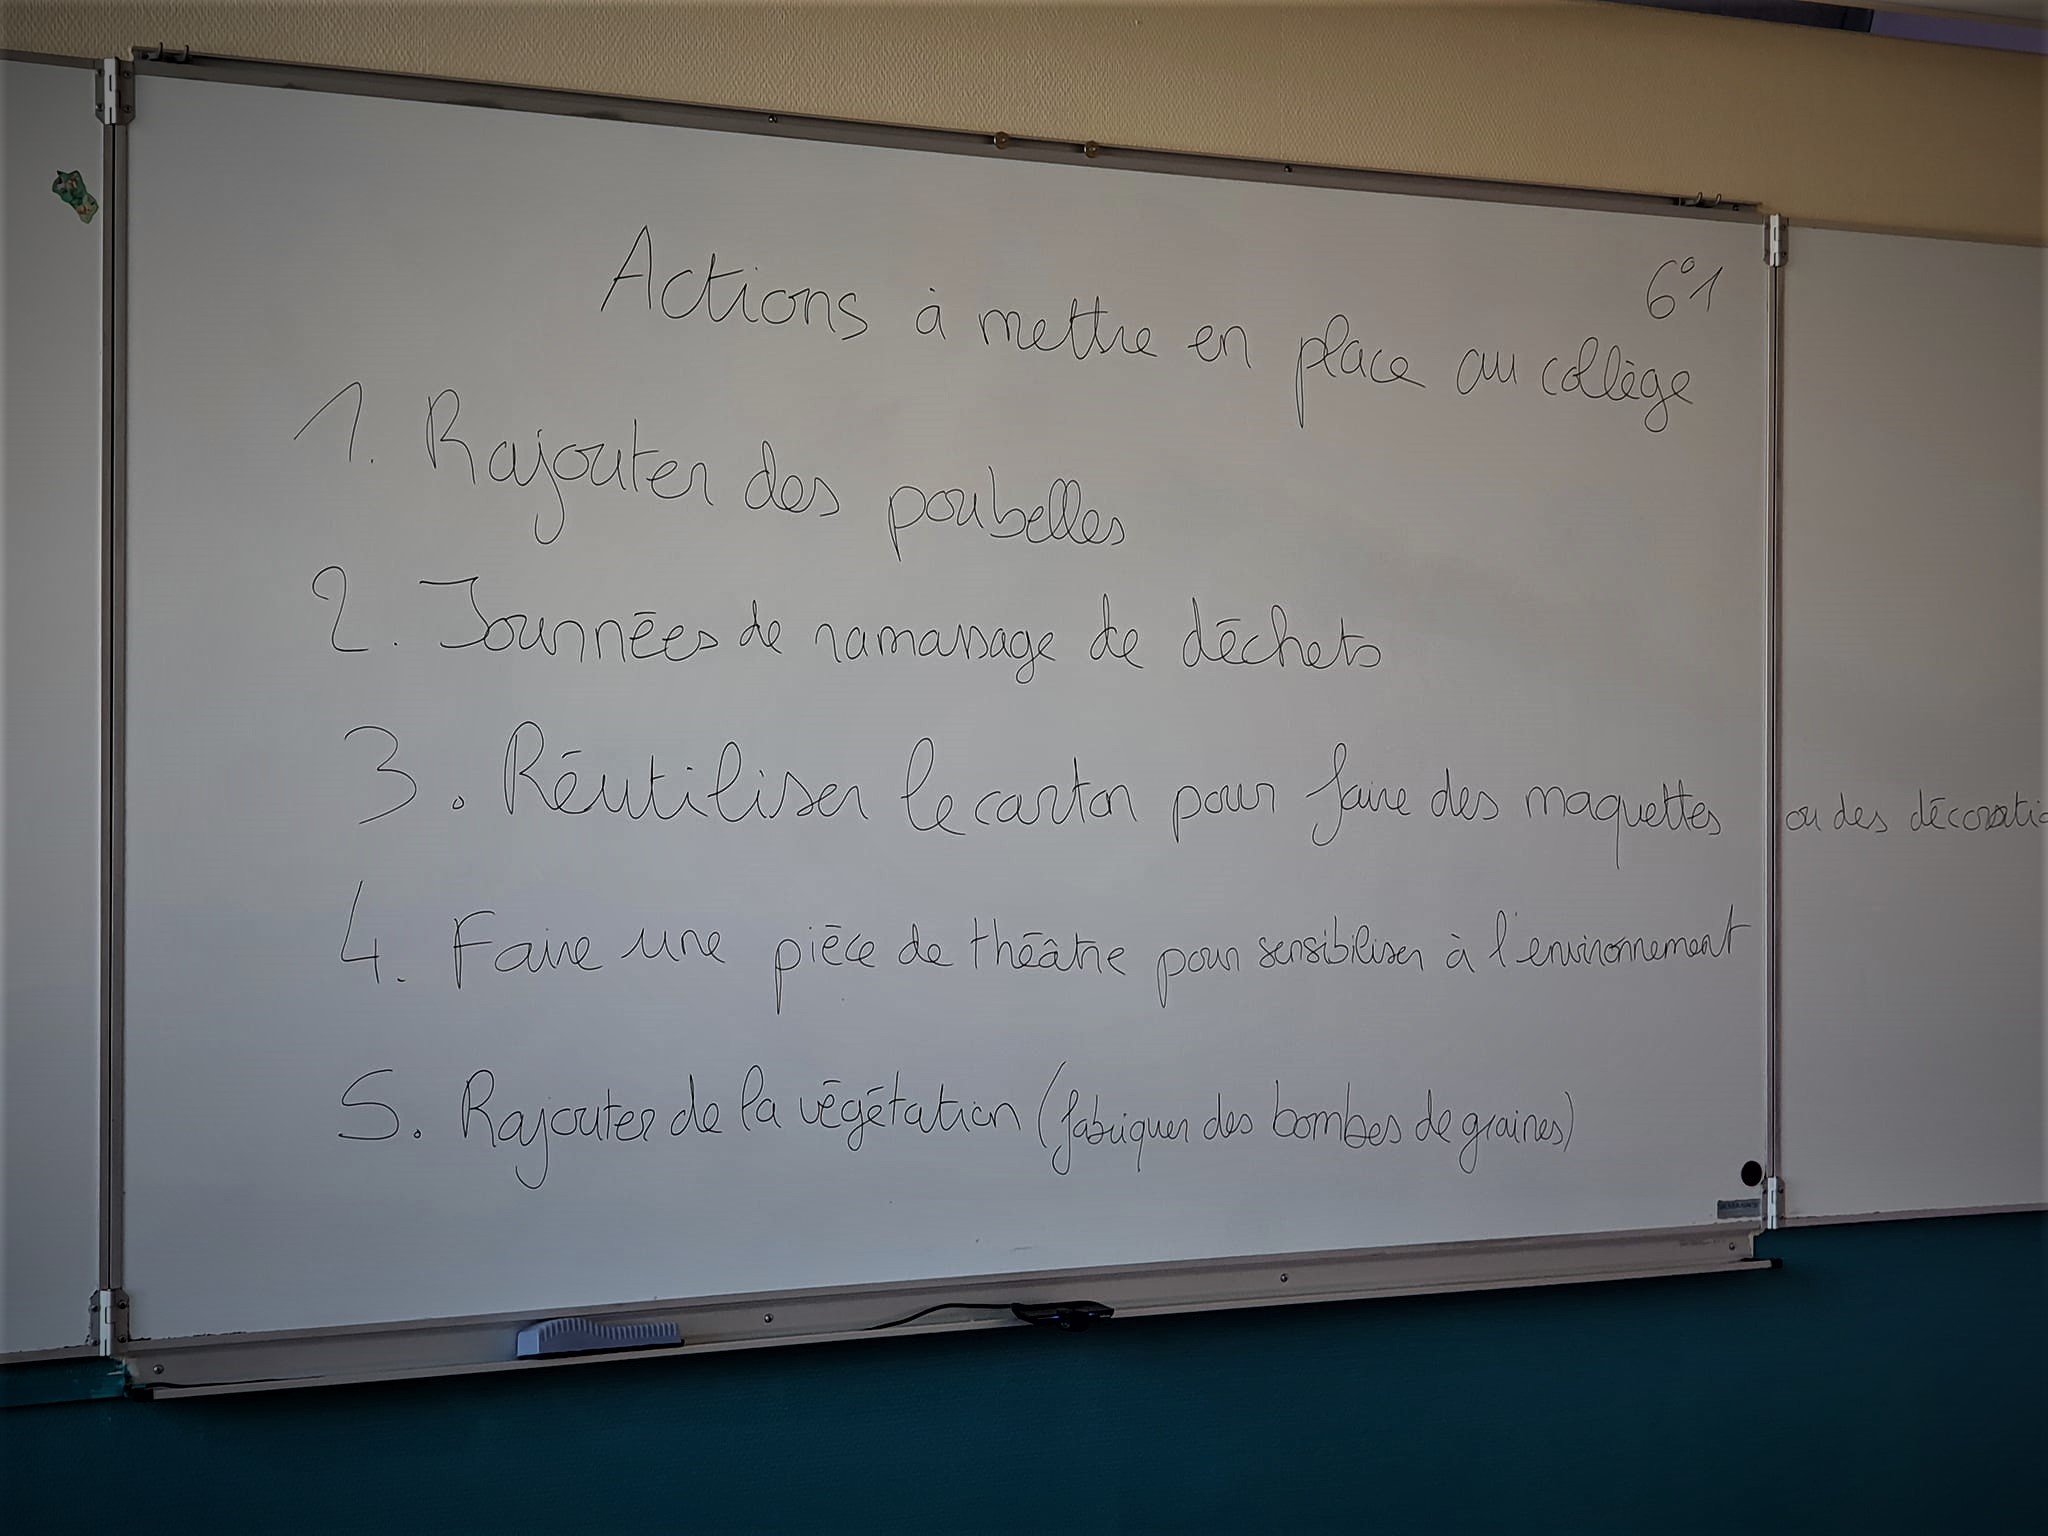 6°1
Actions à mettre en place au collège
1. Rajouter des poubelles
2. Journées de ramassage de déchets
3. Réutiliser le carton pour faire des maquettes ou des décoratio
4. Faire une pièce de théâtre pour sensibiliser à l'environnement
5. Rajouter de la végétation (fabriquer des bombes de graines)